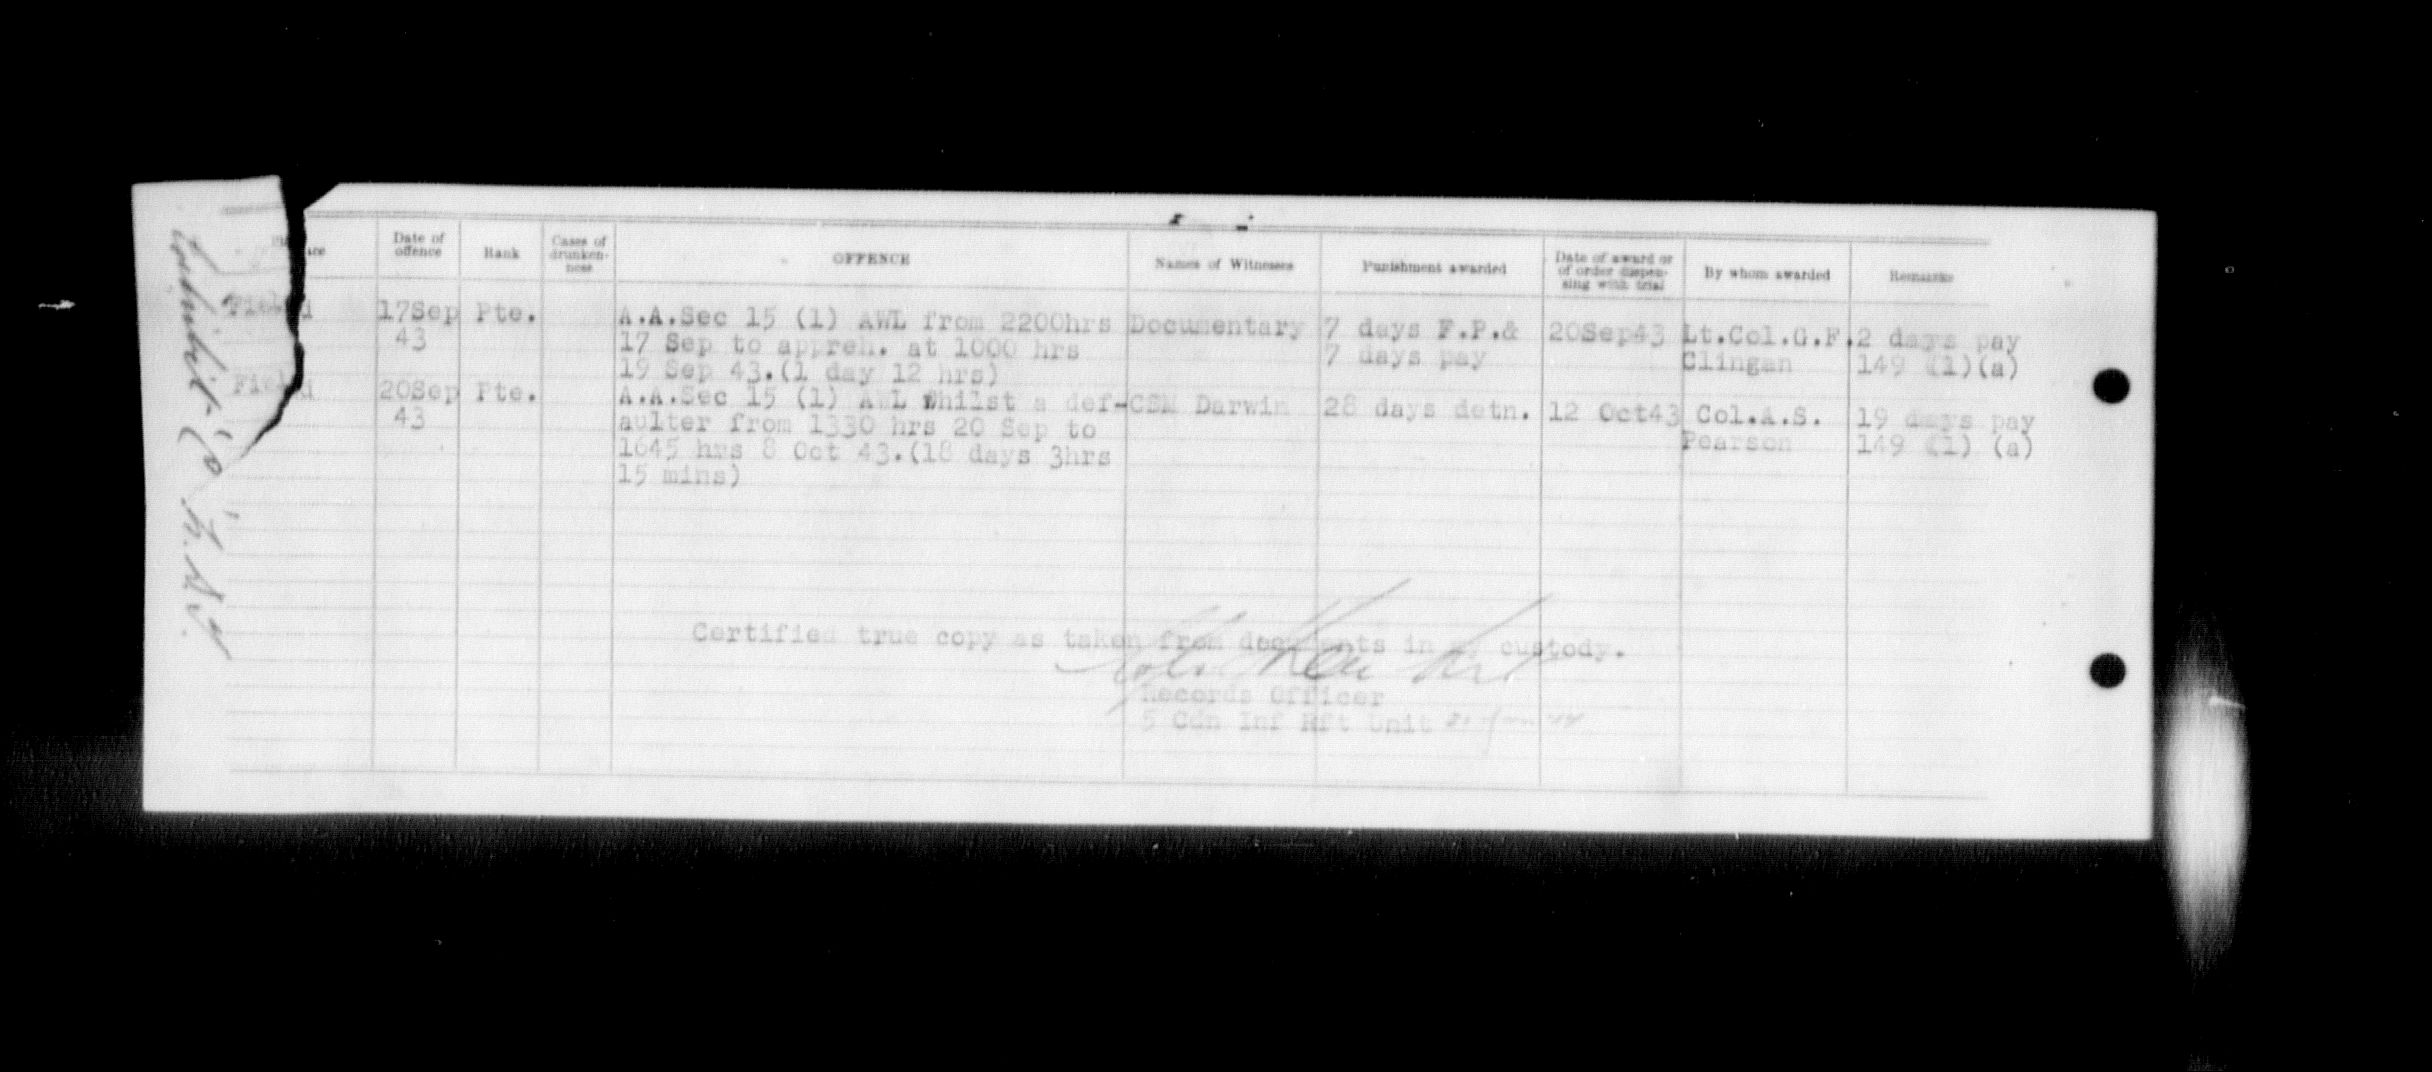 Place
Date of
offence
Rank
Cases of
drunken-
ness
OFFENCE
Names of Witnesses
Punishment awarded
Date of award or
of order dispen-
sing with trial
By whom awarded
Remarks
Field
17Sep
43
Pte.
A.A.Sec 15 (1) AWL from 2200hrs
17 Sep to appreh. at 1000 hrs
19 Sep 43.(1 day 12 hrs)
Documentary
7 days F.P.&
7 days pay
20Sep43
Lt.Col.G.F.
Clingan
2 days pay
149 (1)(a)
Field
20Sep
43
Pte.
A.A.Sec 15 (1) AWL Whilst a def-
aulter from 1330 hrs 20 Sep to
1645 hrs 8 Oct 43.(18 days 3hrs
15 mins)
CSM Darwin
28 days detn.
12 Oct43
Col.A.S.
Pearson
19 days pay
149 (1) (a)
Certified true copy as taken from documents in my custody.
Records Officer
5 Cdn Inf Rft Unit
Exhibit